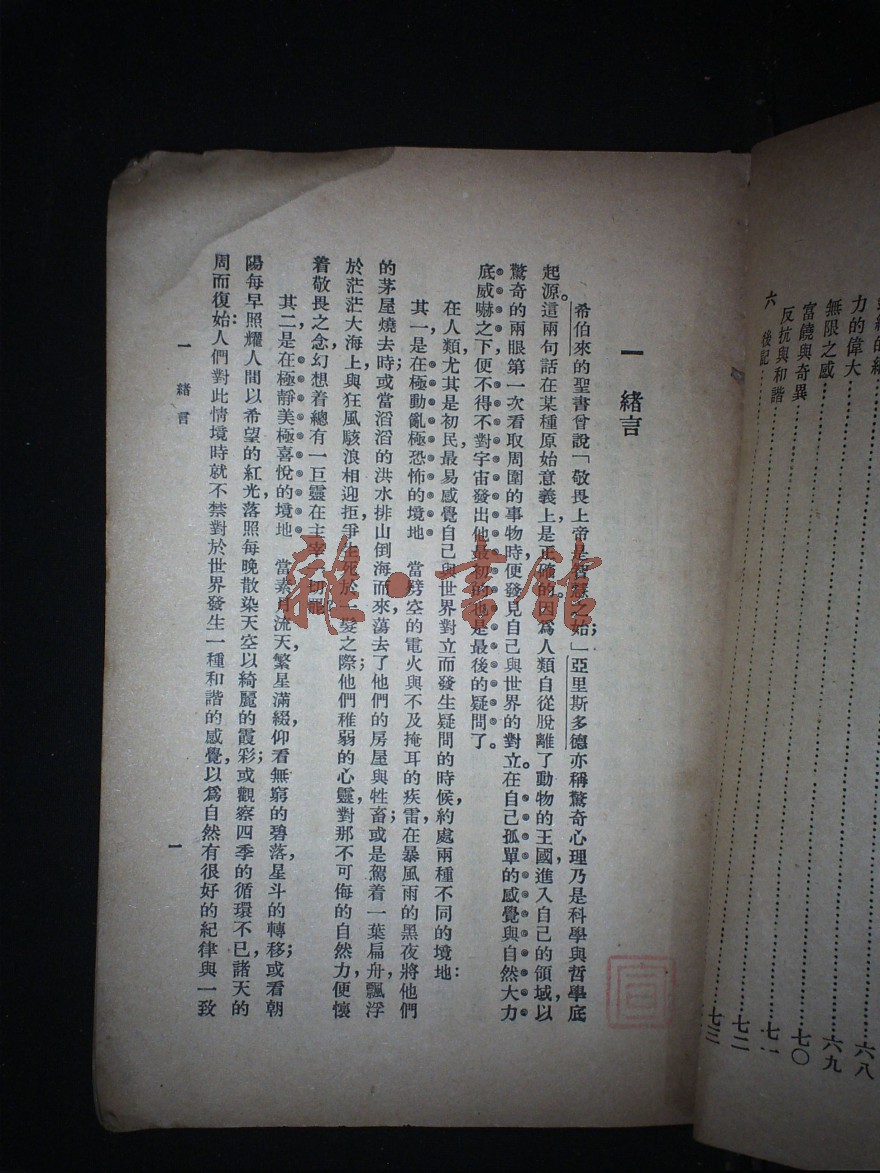 力的偉大……六八
無限之感……六九
富饒與奇異……七〇
反抗與和諧……七一
六 後記……七二
七三
一 緒言
希伯來的聖書曾說「敬畏上帝是智慧之始;」亞里斯多德亦稱驚奇心理乃是科學與哲學底
起源。這兩句話在某種原始意義上是正確的。因爲人類自從脫離了動物的王國,進入自己的領域,以
驚奇的兩眼第一次看取周圍的事物時,便發見自己與世界的對立。在自己孤單的感覺與自然大力
底威嚇之下,便不得不對宇宙發出他最初的也是最後的疑問了。
在人類尤其是初民,最易感覺自己與世界對立而發生疑問的時候,約處兩種不同的境地:
其一是在極動亂極恐怖的境地 當劈空的電火與不及掩耳的疾雷,在暴風雨的黑夜將他們
的茅屋燒去時;或當滔滔的洪水排山倒海而來,蕩去了他們的房屋與牲畜;或是駕着一葉扁舟,飄浮
於茫茫大海上,與狂風駭浪相迎拒,爭生死於一髮之際;他們稚弱的心靈,對那不可侮的自然力,便懷
着敬畏之念,幻想着總有一巨靈在主宰一切罷?
其二是在極靜美極喜悅的境地 當素月流天,繁星滿綴,仰看無窮的碧落,星斗的轉移;或看朝
陽每早照耀人間以希望的紅光,落照每晚散染天空以綺麗的霞彩;或觀察四季的循環不已,諸天的
周而復始:人們對此情境時,就不禁對於世界發生一種和諧的感覺,以爲自然有很好的紀律與一致
一 緒言
一
雜·書館